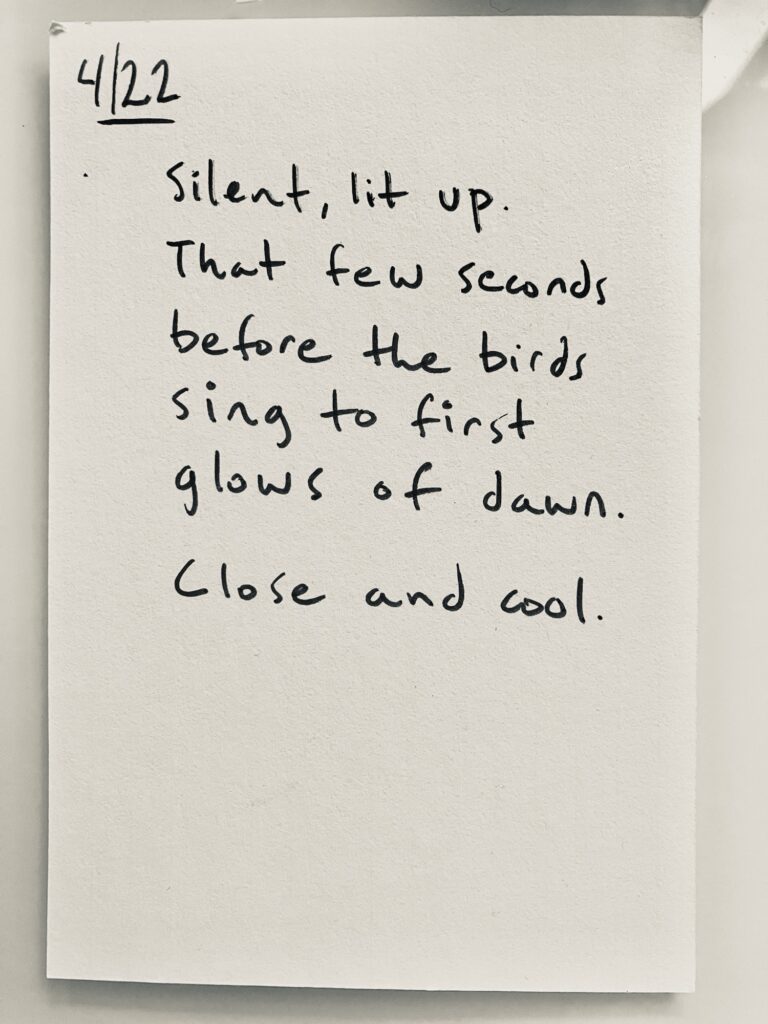 4/22
Silent, lit up.
That few seconds
before the birds
sing to first
glows of dawn.
Close and cool.